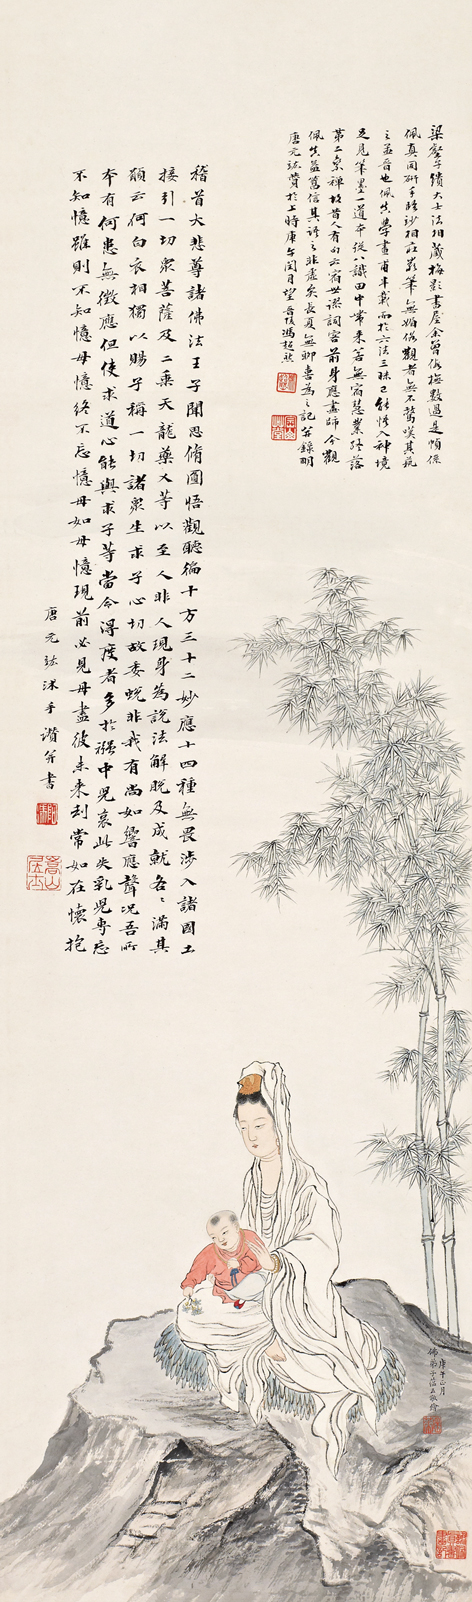 梁壑子績大士法相藏梅影書屋余曾侍梅數過是幀係
佩真同硏手臨沙相莊嚴筆無媚俗觀者無不驚嘆其藝
之益晉也佩真學畫甫半載而於六法三昧已能悟入神境
足見筆墨一道本從八識田中帶來苦無宿慧業終落
第二乘禪故昔人有句云宿世謬詞客前身應畫師今觀
佩真益篤信其語之非虛矣長夏無聊喜為之記并錄明
唐元竑贊於上時庚午閏月望晉陵馮超然
稽首大悲尊諸佛法王子聞思脩圓悟觀聽徧十方三十二妙應十四種無畏涉入諸國土
接引一切眾菩薩及二乘天龍藥叉等以至人非人現身為說法解脫及成就各各滿其
願云何白衣相獨以賜子稱一切諸眾生求子心切故委蛻非我有尚如響應聲況吾所
本有何患無徵應但使求道心能與求子等當令得度者多於襁中兒哀此失乳兒專忘
不知憶雖則不知憶母憶終不忘憶母如母憶現前必見母盡彼未來刦常如在懷抱
唐元竑沐手讚并書
庚午六月
佛弟子溫玉敬繪